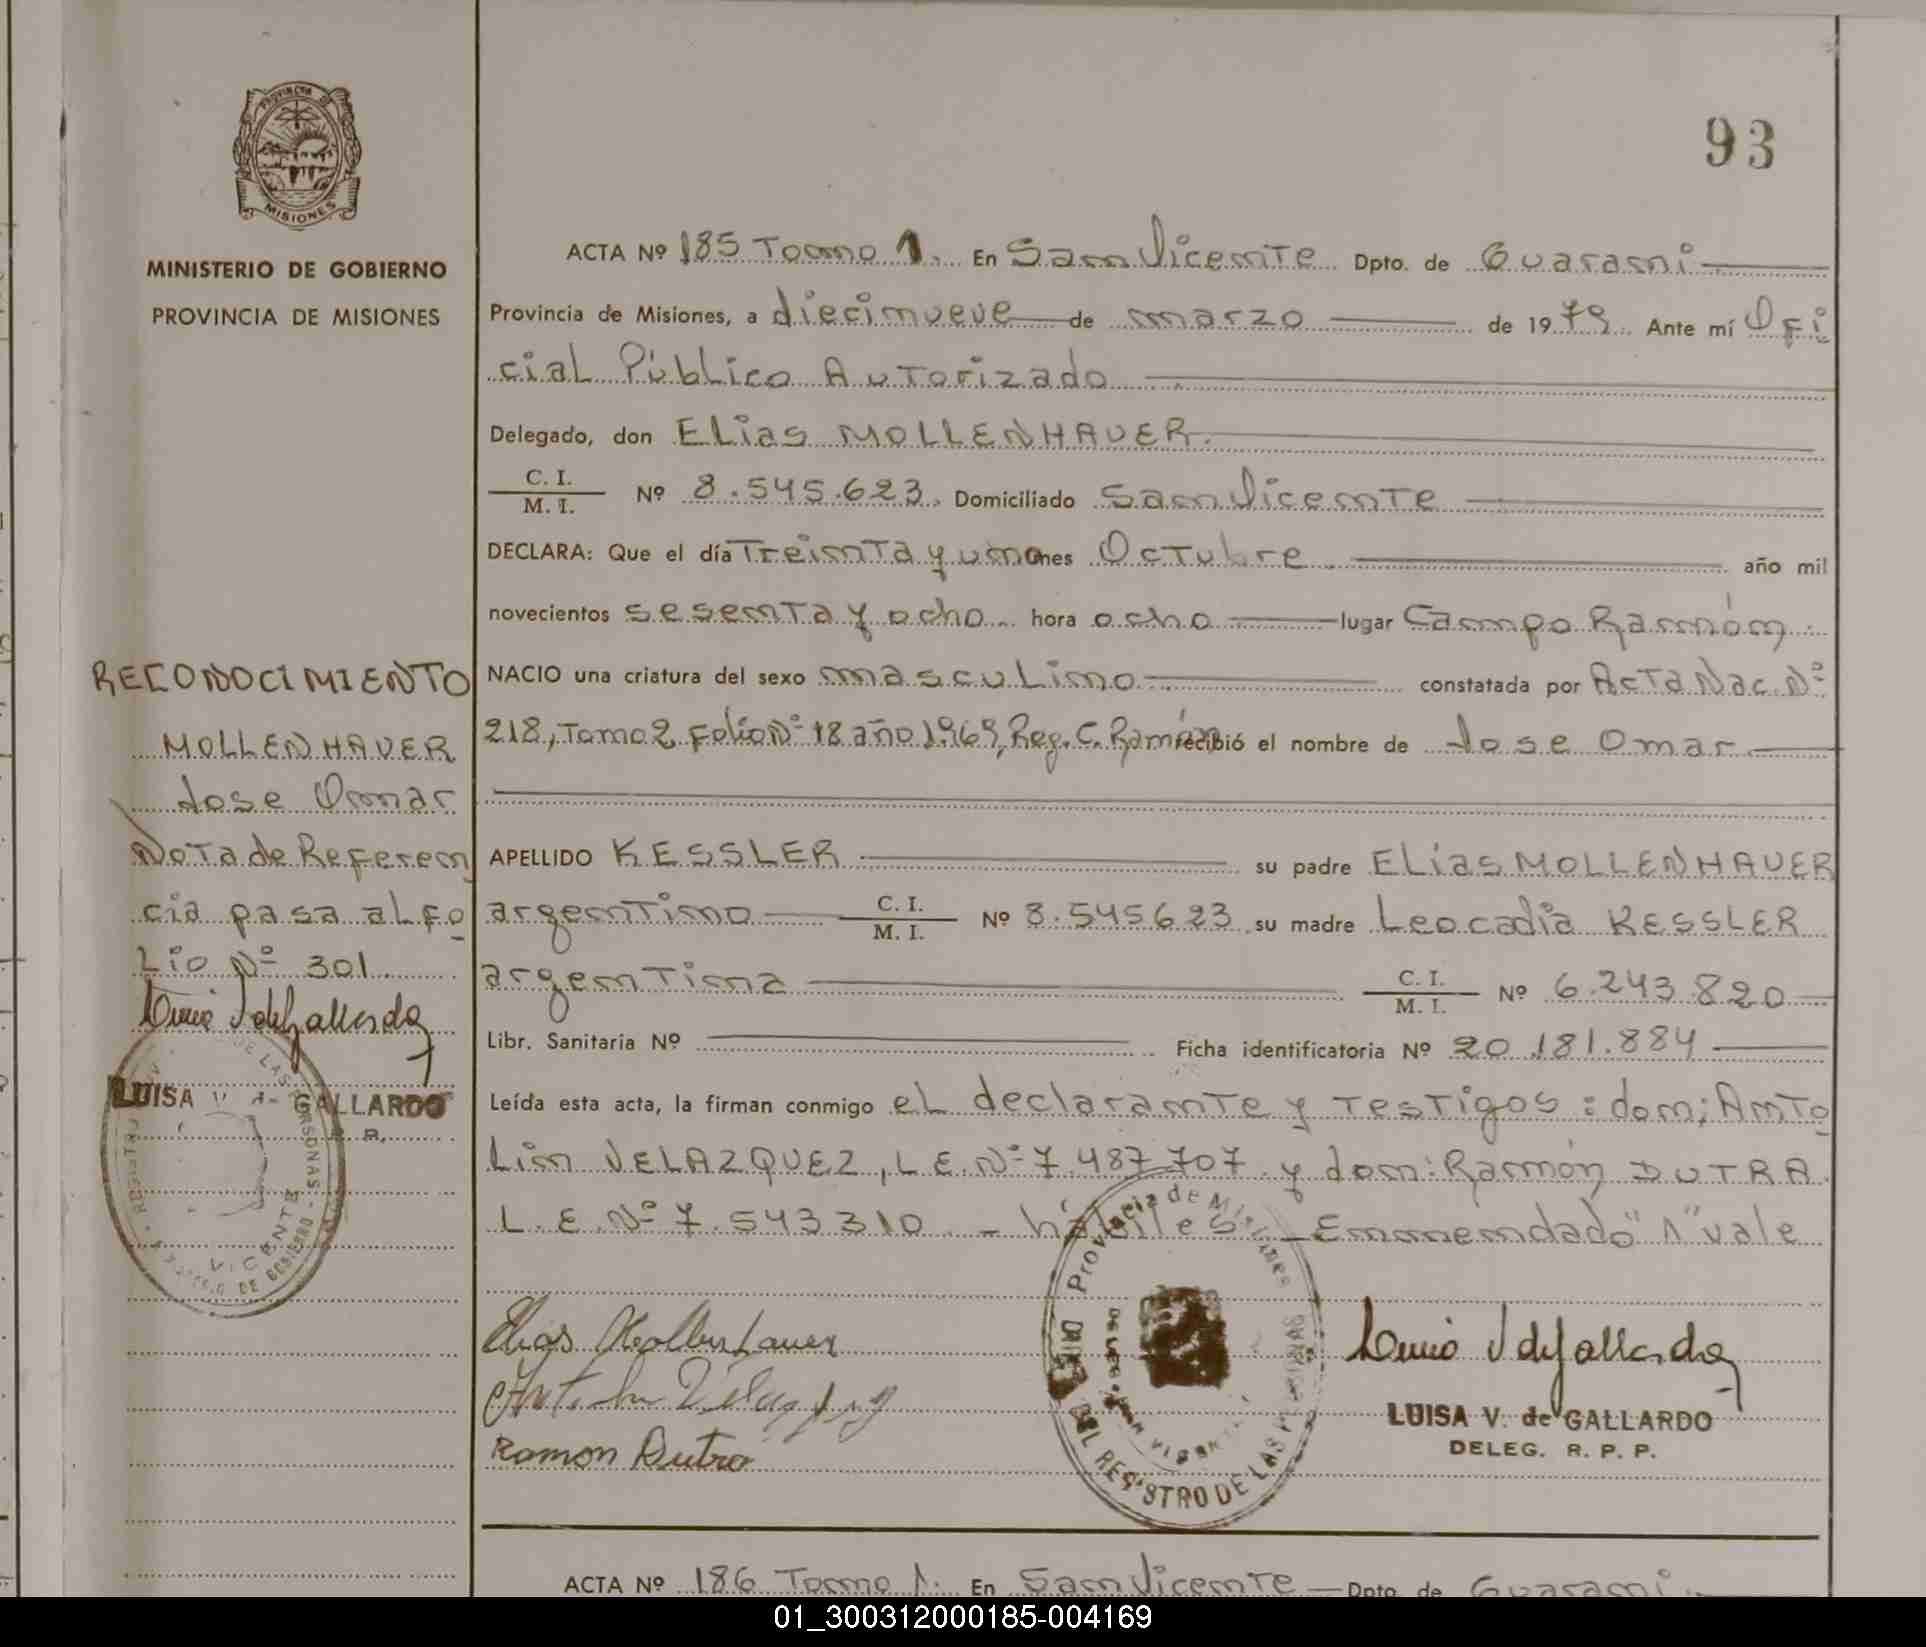 PROVINCIA DE
MISIONES
MINISTERIO DE GOBIERNO
PROVINCIA DE MISIONES
RECONOCIMIENTO
MOLLENHAUER
Jose Omar
Nota de Referen
cia pasa al fo
lio Nº 301
LUISA V. de GALLARDO
93
ACTA Nº 185 Tomo 1. En San Vicente Dpto. de Guarani
Provincia de Misiones, a diecinueve de marzo de 1979 Ante mí Ofi
cial Público Autorizado
Delegado, don Elias MOLLENHAUER.
C. I.
M. I. Nº 8.545.623. Domiciliado San Vicente
DECLARA: Que el día Treinta y uno mes Octubre año mil
novecientos sesenta y ocho hora ocho lugar Campo Ramón
NACIO una criatura del sexo masculino constatada por Acta Nac. Nº
218, Tomo 2 Folio Nº 18 año 1969, Reg. C. Ramón recibió el nombre de Jose Omar
APELLIDO KESSLER su padre Elias MOLLENHAUER
argentino C. I. M. I. Nº 8.545623 su madre Leocadia KESSLER
argentina C. I. M. I. Nº 6.243.820
Libr. Sanitaria Nº Ficha identificatoria Nº 20.181.884
Leída esta acta, la firman conmigo el declarante y testigos: don; Anto
lin VELAZQUEZ, L.E. Nº 7.487.707 y don: Ramón DUTRA
L.E. Nº 7.543.310 - hábiles - Enmendado "1" vale
Elias Mollenhauer
Antolin Velazquez
Ramon Dutra
Provincia de Misiones
DEL REGISTRO DE LAS
LUISA V. de GALLARDO
DELEG. R. P. P.
ACTA Nº 186 Tomo 1. En San Vicente Dpto. de Guarani
01_300312000185-004169